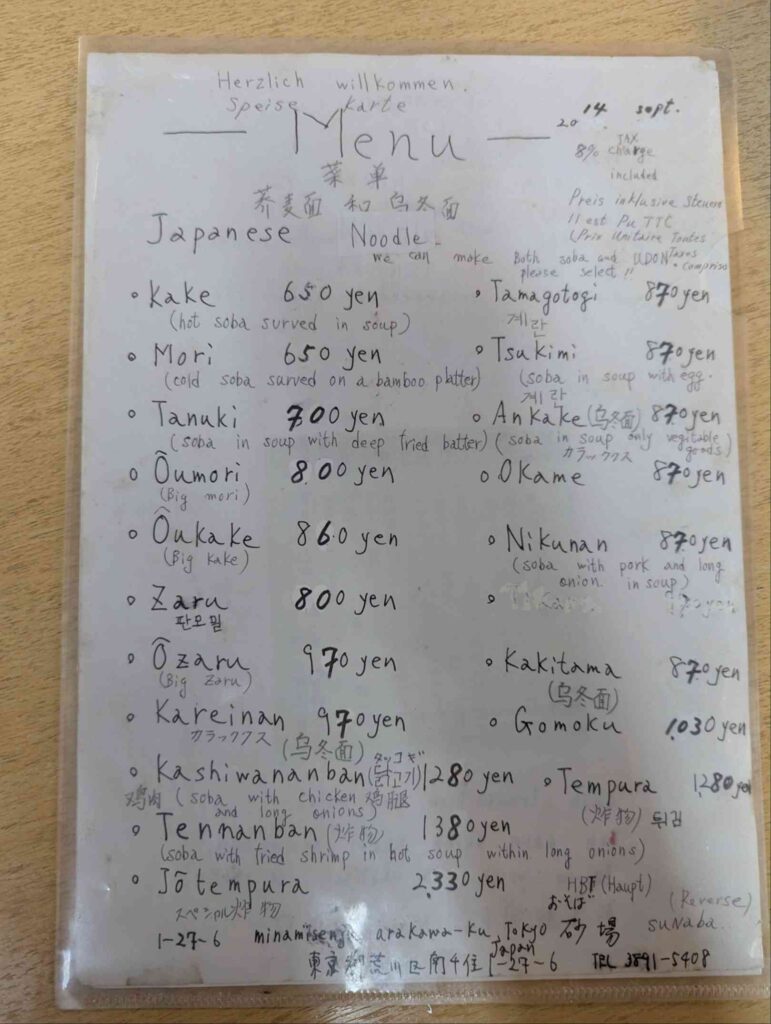 Herzlich willkommen.
Speise Karte
Menu
2014 sept.
8% TAX charge
included
菜单
荞麦面 和 乌冬面
Preis inklusive Steuern
Il est Pu TTC
(Prix Unitaire Toutes
Taxes Compriso
Japanese Noodle
we can make Both soba and UDON
please select!!
Kake 650 yen
(hot soba surved in soup)
Mori 650 yen
(cold soba surved on a bamboo platter)
Tanuki 700 yen
(soba in soup with deep fried batter)
Ôumori 800 yen
(Big mori)
Ôukake 860 yen
(Big kake)
Zaru 800 yen
판모밀
Ôzaru 970 yen
(Big Zaru)
Kareinan 970 yen
カラックス (乌冬面)
Kashiwananban (닭고기) 1280 yen
タッコギ
鸡肉 (soba with chicken 鸡腿
and long onions)
Tennanban (炸物) 1380 yen
(soba with fried shrimp in hot soup within long onions)
Jôtempura 2,330 yen
スペシャル炸物
Tamagotogi 870 yen
계란
Tsukimi 870 yen
(soba in soup with egg.
계란
Ankake (乌冬面) 870 yen
(soba in soup only vegitable goods)
カラックス
Okame 870 yen
Nikunan 870 yen
(soba with pork and long
onion in soup)
Kakitama 870 yen
(乌冬面)
Gomoku 1,030 yen
Tempura 1,280 yen
(炸物) 튀김
HBF (Haupt)
おそば (Reverse)
1-27-6 minamisenju arakawa-ku, Tokyo 砂場 sunaba..
Japan
東京都荒川区南千住1-27-6 TEL 3891-5408